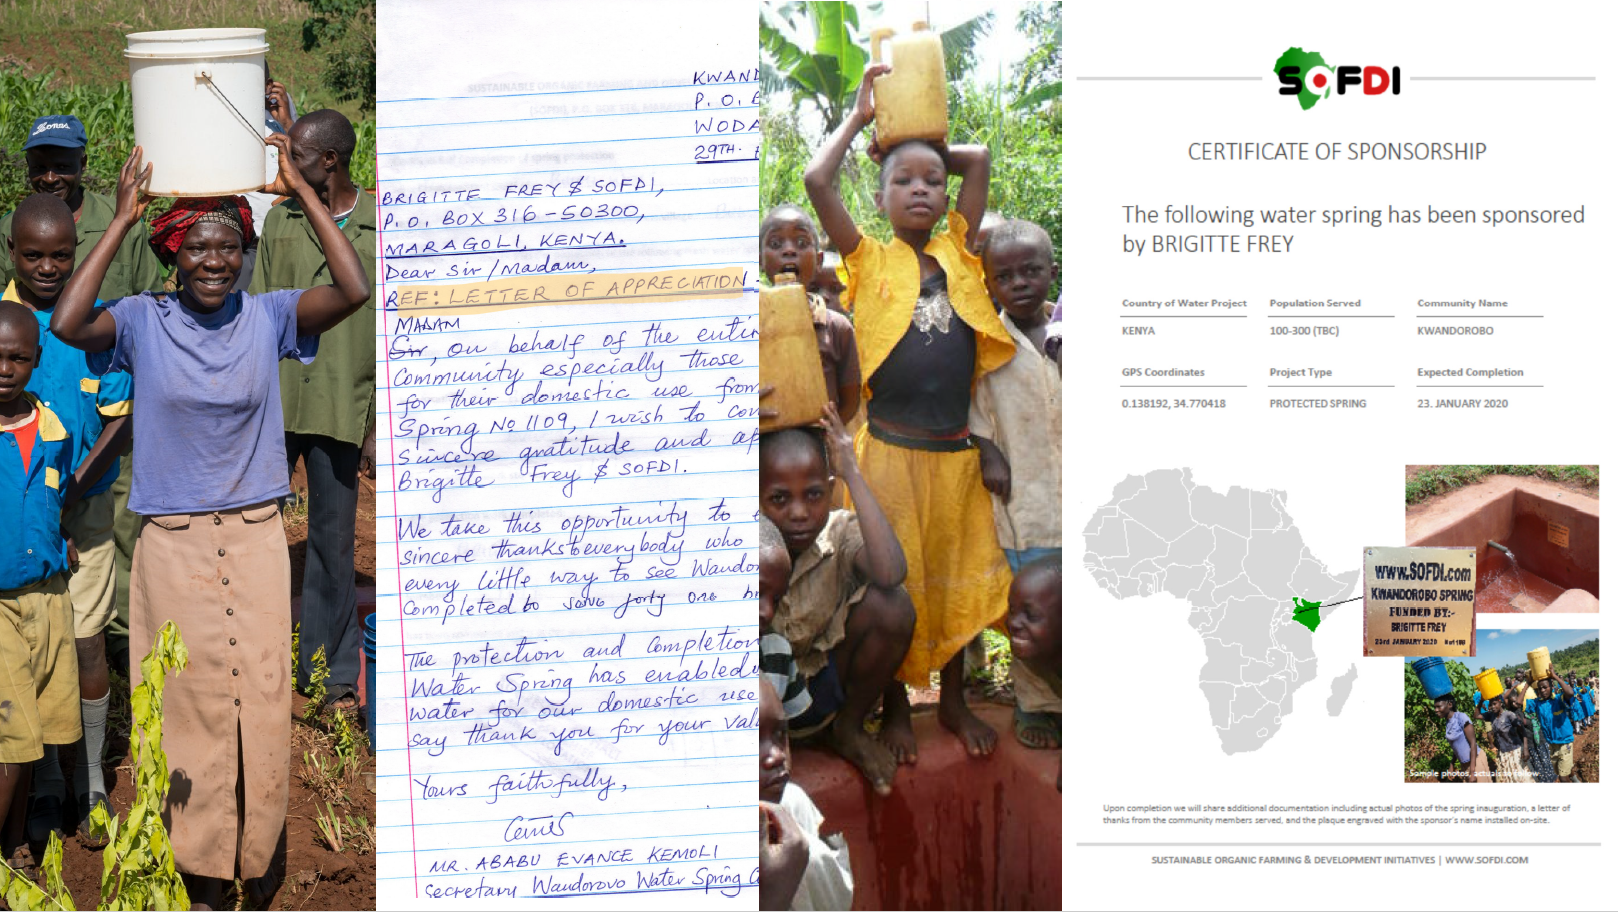 Sonas
KWAND
P. O. B
WODA
29TH.
BRIGITTE FREY & SOFDI,
P.O. BOX 316 - 50300,
MARAGOLI, KENYA.
Dear Sir / Madam,
REF: LETTER OF APPRECIATION
MADAM
Sir, on behalf of the entir
Community especially those
for their domestic use from
Spring No 1109, I wish to con
sincere gratitude and ap
Brigitte Frey & SOFDI.
We take this opportunity to
sincere thanks to everybody who
every little way to see Wandor
Completed to serve forty one
The protection and Completion
Water Spring has enabled
water for our domestic use
say thank you for your val
Yours faithfully,
MR. ABABU EVANCE KEMOLI
Secretary Wandorovo Water Spring
SOFDI
CERTIFICATE OF SPONSORSHIP
The following water spring has been sponsored
by BRIGITTE FREY
Country of Water Project Population Served Community Name
KENYA 100-300 (TBC) KWANDOROBO
GPS Coordinates Project Type Expected Completion
0.138192, 34.770418 PROTECTED SPRING 23. JANUARY 2020
www.SOFDI.com
KWANDOROBO SPRING
FUNDED BY:-
BRIGITTE FREY
23rd JANUARY 2020
Sample photos, actuals to follow
Upon completion we will share additional documentation including actual photos of the spring inauguration, a letter of
thanks from the community members served, and the plaque engraved with the sponsor's name installed on-site.
SUSTAINABLE ORGANIC FARMING & DEVELOPMENT INITIATIVES | WWW.SOFDI.COM